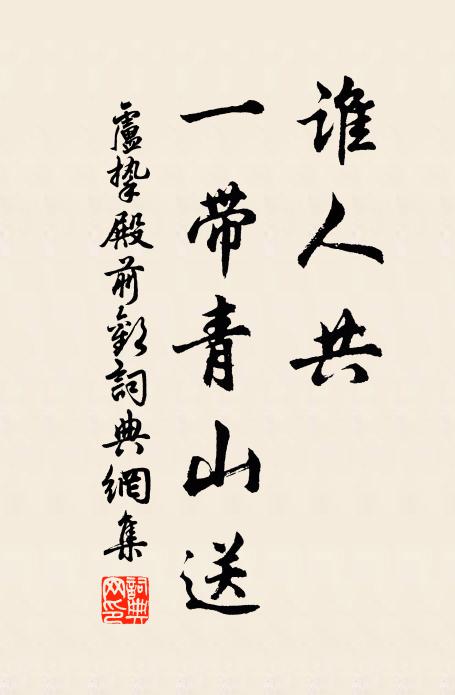 谁人共
一带青山送
卢挚殿前欢词典網集
词典网印